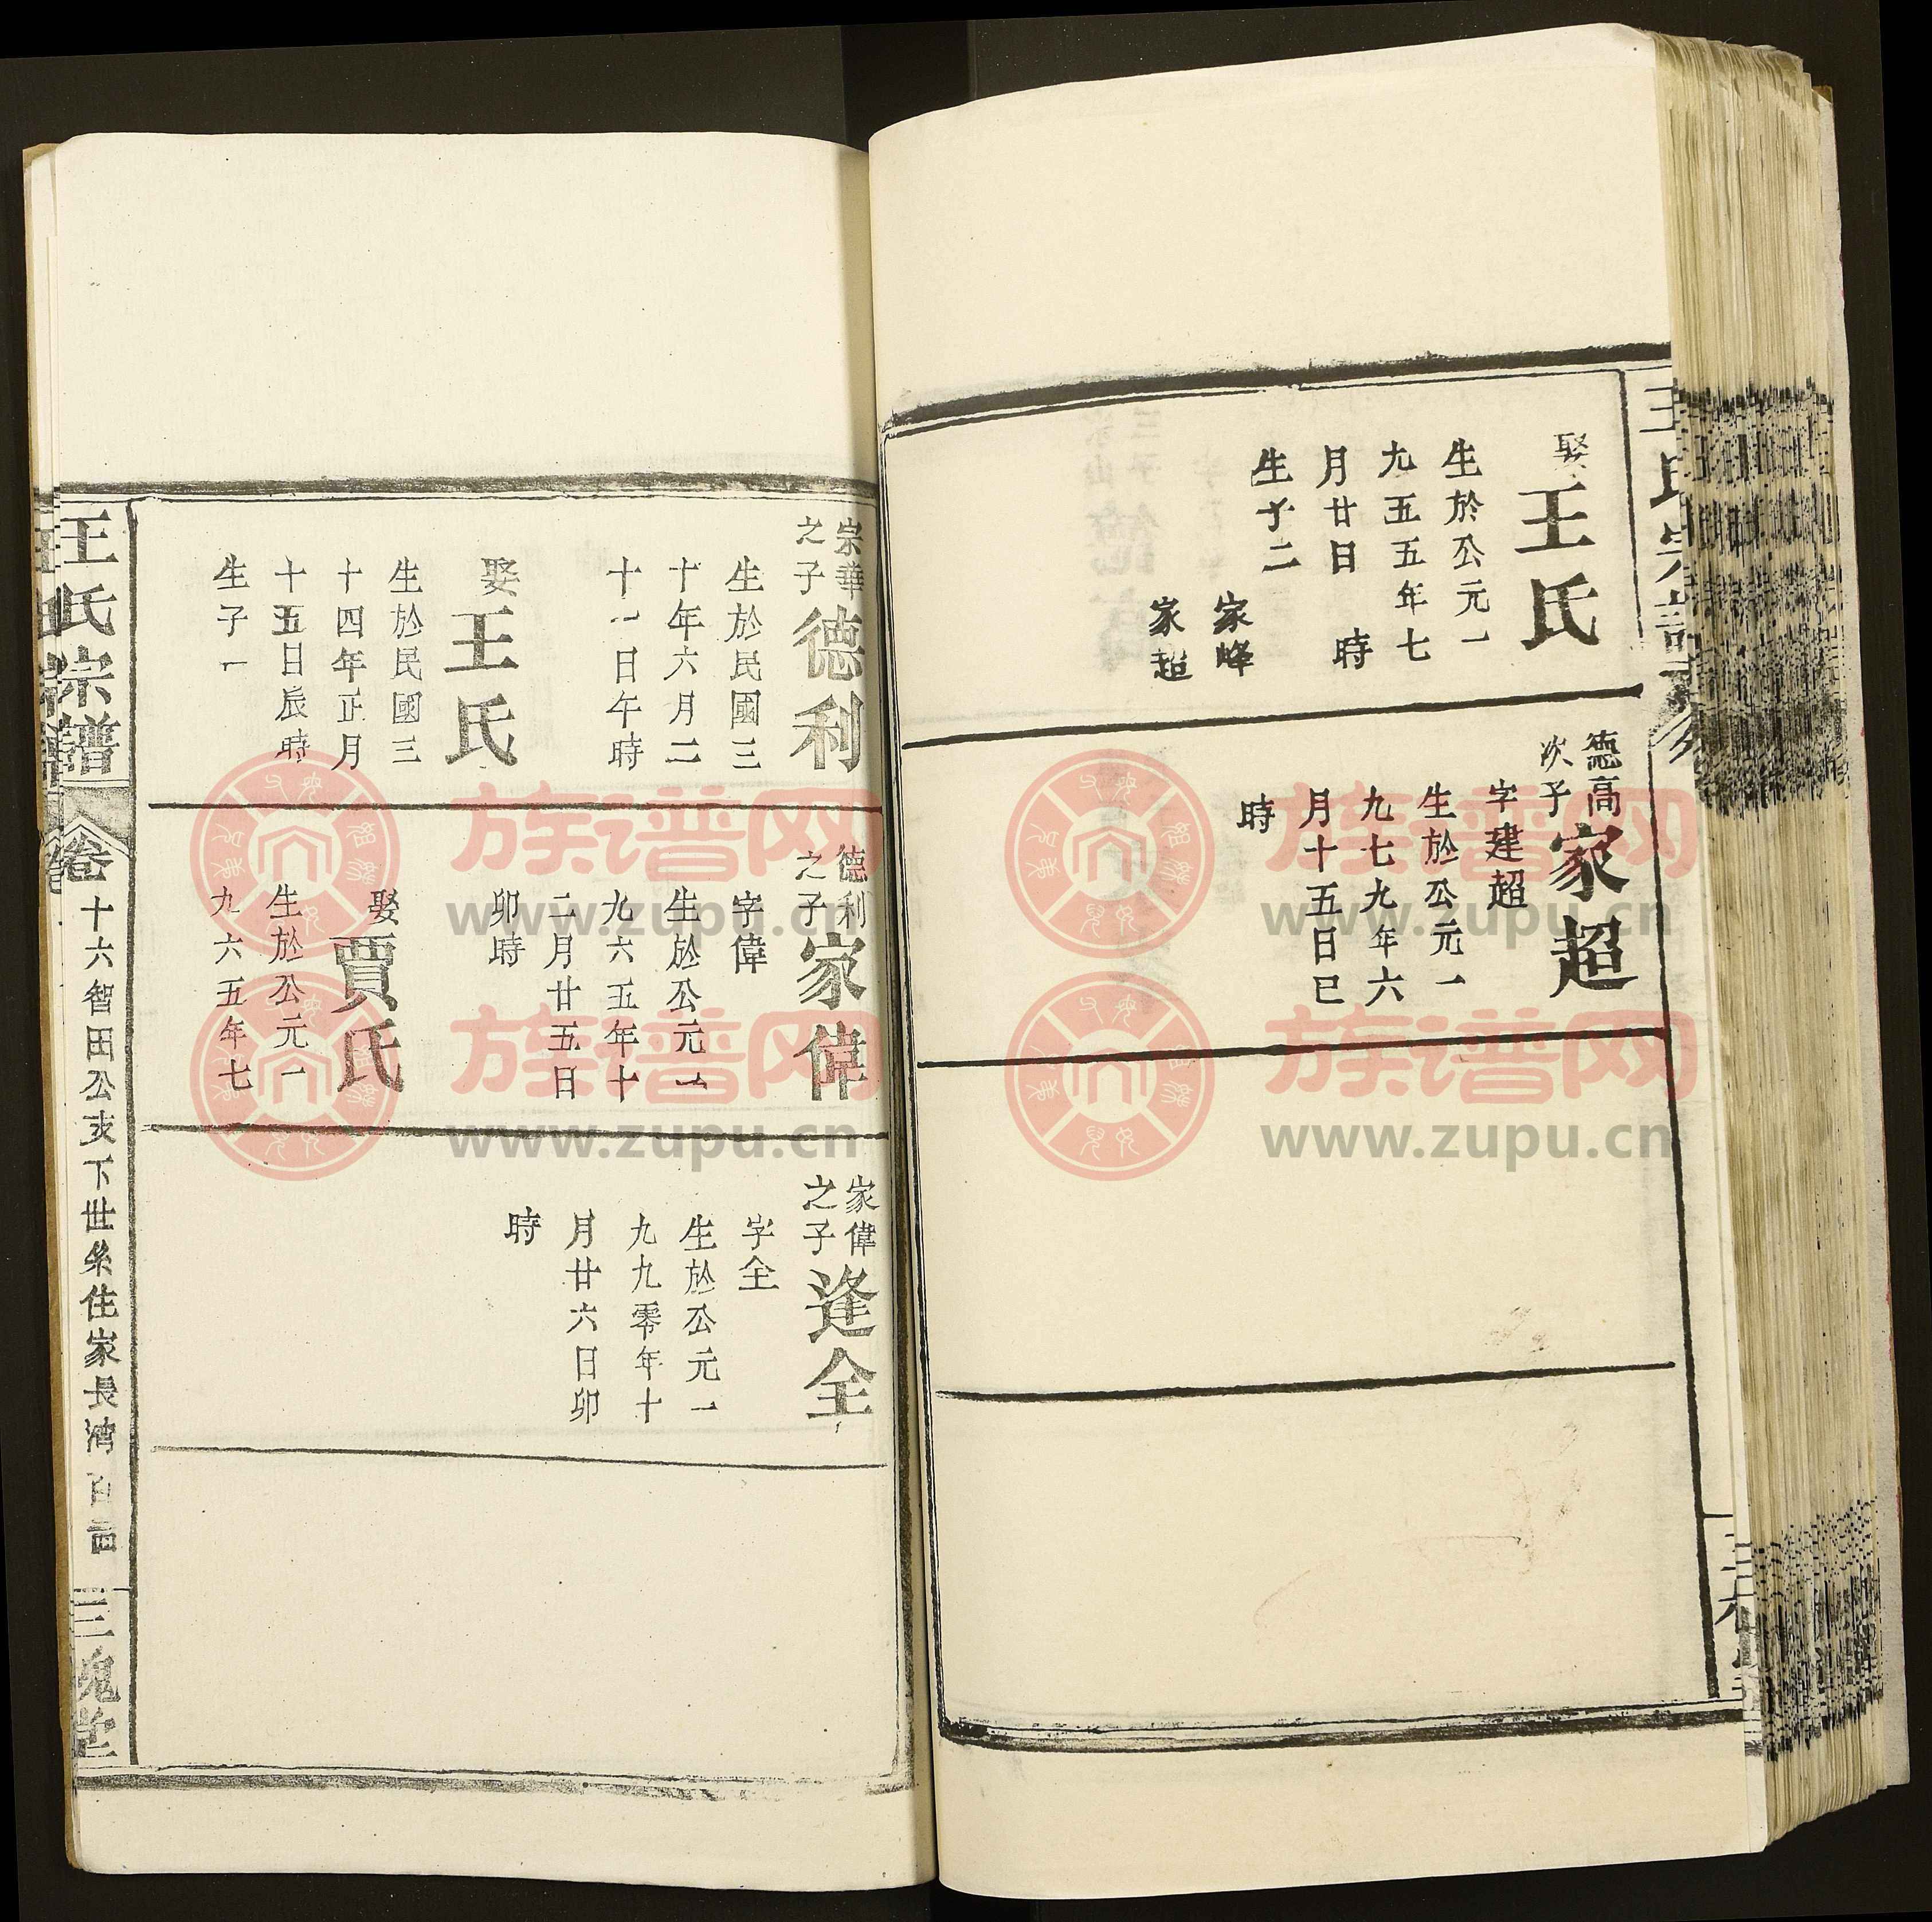 王氏宗譜
娶王氏
生於公元一
九五五年七
月廿日　時
生子二
家峰
家超
德高
次子
家超
字建超
生於公元一
九七九年六
月十五日巳
時
宗華
之子
德利
生於民國三
十年六月二
十一日午時
娶王氏
生於民國三
十四年正月
十五日辰時
生子一
德利
之子
家偉
字偉
生於公元一
九六五年十
二月廿五日
卯時
娶賈氏
生於公元一
九六五年七
家偉
之子
逢全
字全
生於公元一
九九零年十
月廿六日卯
時
王氏宗譜
卷十六智田公支下世系住家長灣
三槐堂
族谱网
www.zupu.cn
族谱网
www.zupu.cn
族谱网
www.zupu.cn
族谱网
www.zupu.cn